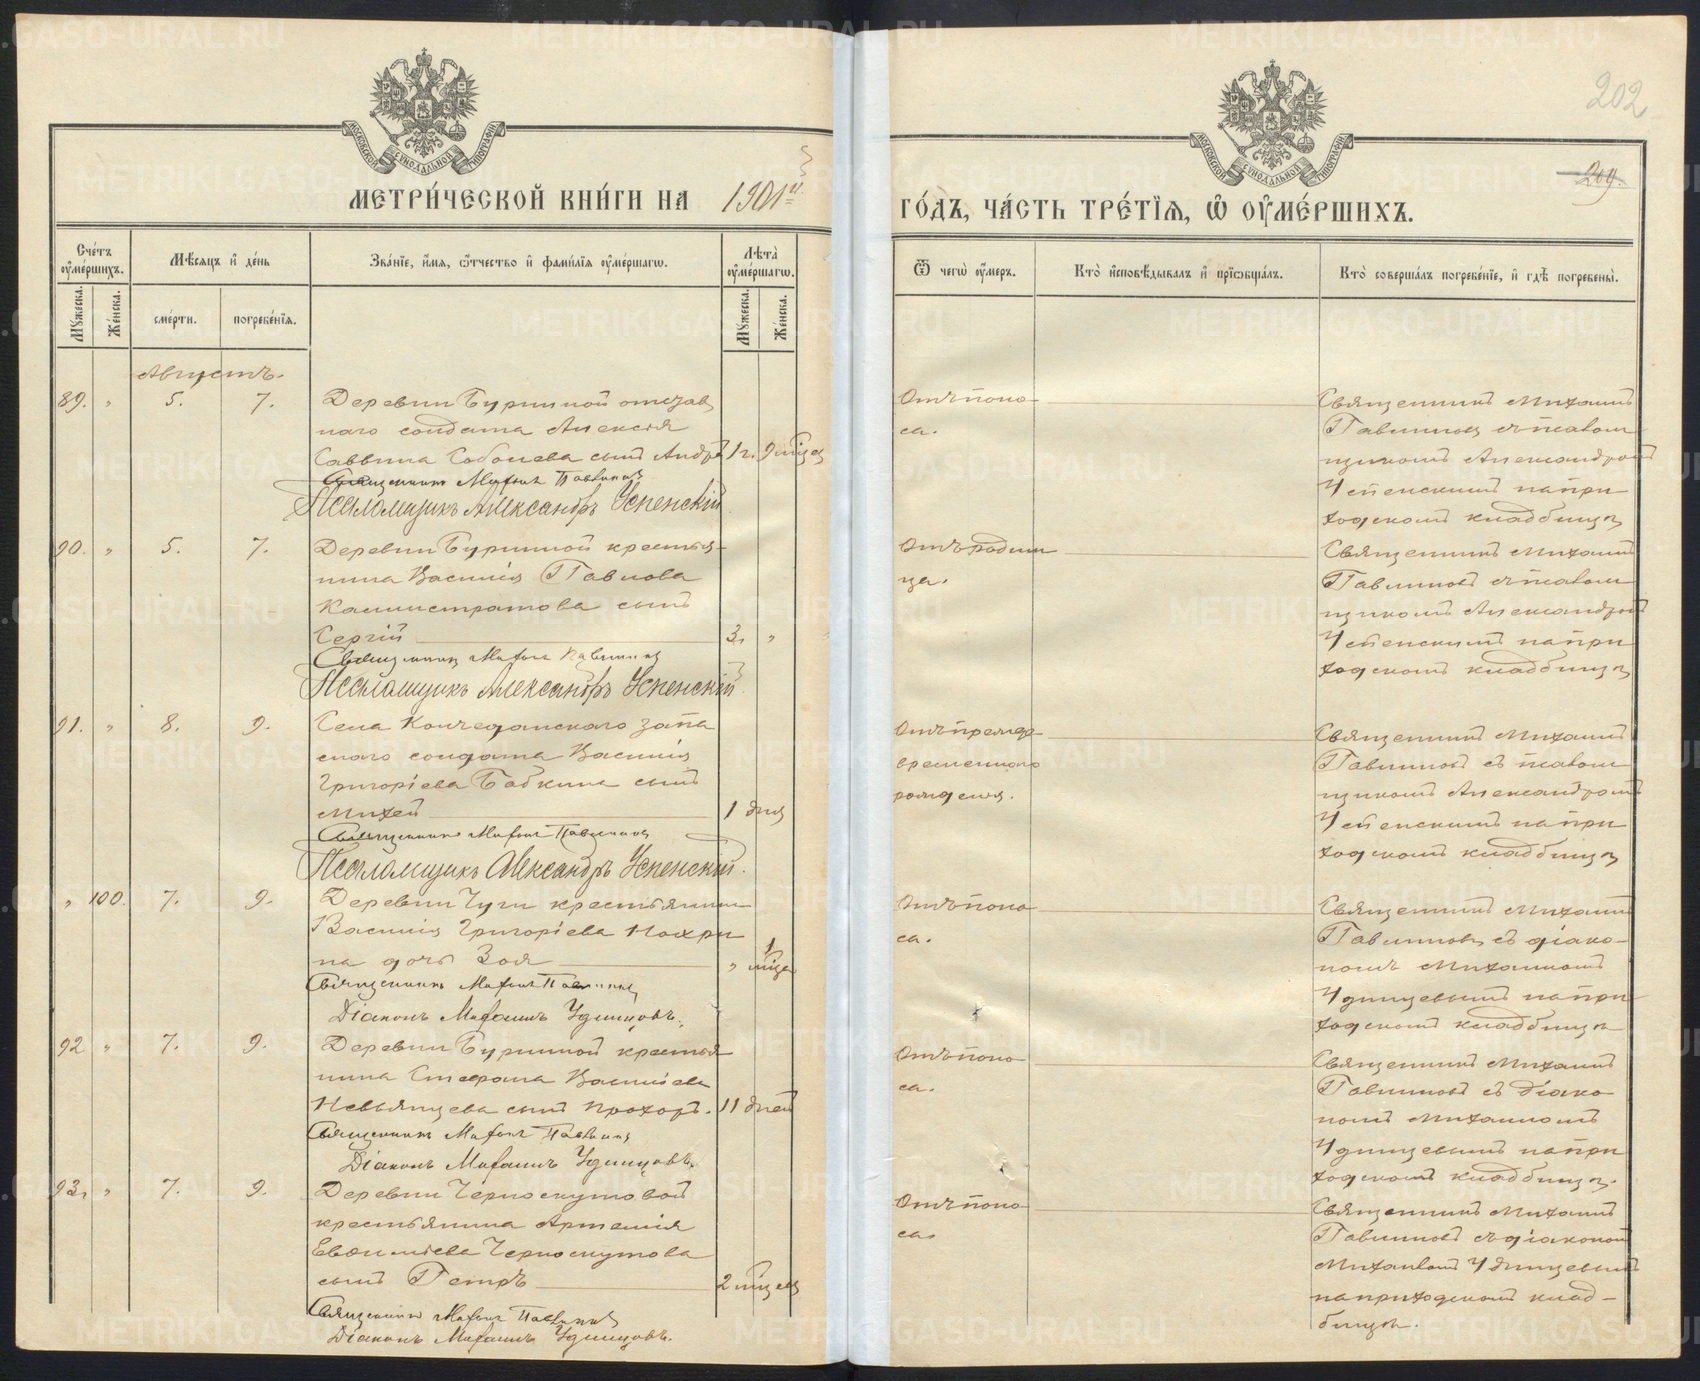 202
209.
МОСКОВСКОЙ СѴНОДАЛЬНОЙ ТИПОГРАФІИ
МОСКОВСКОЙ СѴНОДАЛЬНОЙ ТИПОГРАФІИ
МЕТРИ́ЧЕСКОЙ КНИ́ГИ НА 1901й
ГО́ДЪ, ЧА́СТЬ ТРЕ́ТЇѦ, Ѡ҆ ОУ҆МЕ́РШИХЪ.
Сче́тъ оу҆ме́ршихъ.
Мꙋ́жеска.
Же́нска.
Мѣ́сѧцъ и҆ де́нь
сме́рти.
погребе́нїѧ.
Зва́нїе, и҆́мѧ, ѻ҆́тчество и҆ фами́лїѧ оу҆ме́ршагѡ.
Лѣ́та оу҆ме́ршагѡ.
Мꙋ́жеска.
Же́нска.
Ѿ чегѡ̀ оу҆́меръ.
Кто̀ и҆сповѣ́дывалъ и҆ прїѡбща́лъ.
Кто̀ соверша́лъ погребе́нїе, и҆ гдѣ̀ погребены̀.
Августъ.
89. " 5. 7.
Деревни Буриной отстав
наго солдата Алексѣя
Саввина Соболева сынъ Андрей 1 г. 9 мѣсяц
Священникъ Михаилъ Павлиновъ
Псаломщикъ Александръ Успенскій
Отъ поно-
са.
Священникъ Михаилъ
Павлиновъ съ псалом
щикомъ Александромъ
Успенскимъ на при
ходскомъ кладбищѣ
90. " 5. 7.
Деревни Буриной крестья-
нина Василія Павлова
Каллистратова сынъ
Сергій 3. "
Священникъ Михаилъ Павлиновъ
Псаломщикъ Александръ Успенскій
Отъ родим
ца.
Священникъ Михаилъ
Павлиновъ съ псалом
щикомъ Александромъ
Успенскимъ на при
ходскомъ кладбищѣ
91. " 8. 9.
Села Колчеданскаго запа
снаго солдата Василія
Григоріева Бабкина сынъ
Михей 1 дня
Священникъ Михаилъ Павлиновъ
Псаломщикъ Александръ Успенскій.
Отъ прежде
временнаго
рожденія.
Священникъ Михаилъ
Павлиновъ съ псалом
щикомъ Александромъ
Успенскимъ на при
ходскомъ кладбищѣ
" 100. 7. 9.
Деревни Чуги крестьянина
Василія Григоріева Нохри
на дочь Зоя " 1 мѣсяца
Священникъ Михаилъ Павлиновъ
Діаконъ Михаилъ Удинцовъ.
Отъ поно
са.
Священникъ Михаилъ
Павлиновъ съ діако-
номъ Михаиломъ
Удинцевымъ на при
ходскомъ кладбищѣ
92 " 7. 9.
Деревни Буриной крестья
нина Стефана Василіева
Невьянцева сынъ Прохоръ. 11 дней
Священникъ Михаилъ Павлиновъ
Діаконъ Михаилъ Удинцовъ.
Отъ поно
са.
Священникъ Михаилъ
Павлиновъ съ діако
номъ Михаиломъ
Удинцевымъ на при
ходскомъ кладбищѣ.
93. " 7. 9.
Деревни Черноскутовой
крестьянина Артемія
Евфиміева Черноскутова
сынъ Петръ 2 мѣсяц
Священникъ Михаилъ Павлиновъ
Діаконъ Михаилъ Удинцовъ.
Отъ поно
са.
Священникъ Михаилъ
Павлиновъ съ діакономъ
Михаиломъ Удинцевымъ
на приходскомъ клад-
бищѣ.
METRIKI.GASO-URAL.RU